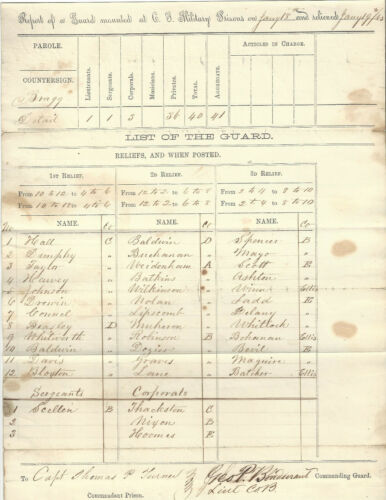 Report of a Guard mounted at C. S. Military Prisons on Jany 18th and relieved Jany 19th/63
PAROLE.
ARTICLES IN CHARGE.
COUNTERSIGN.
Lieutenants. Sergeants. Corporals. Musicians. Privates. Total. Aggregate.
Bragg
Detail 1 1 3 36 40 41
LIST OF THE GUARD.
RELIEFS, AND WHEN POSTED.
1ST RELIEF. 2D RELIEF. 3D RELIEF.
From 10 to 12 to 4 to 6 From 12 to 2 to 6 to 8 From 2 to 4 to 8 to 10
From 10 to 12 to 4 to 6 From 12 to 2 to 6 to 8 From 2 to 4 to 8 to 10
No. NAME. Co NAME. Co NAME. Co
1 Hall C Baldwin D Spencer B
2 Dunphy " Buchanan " Mayo "
3 Taylor " Weidenham A Scott E
4 Harvey " Batkins " Ashton "
5 Johnson " Wilkinson " Winn Ellis
6 Nolan " Ladd E
7 Lipscomb " Delany "
8 Beasley D " Whitlock "
9 Whitworth " Robinson B Bohannan Ellis
10 Baldwin " " Bevil E
11 Davis " Graves " Maguire "
12 Bloxton " Lane " Butcher Ellis
Sergeants Corporals
1 B Thackston C
2 Nixon B
3 Hoomes E
To Capt Thomas P. Turner Geo. P. Bondurant Commanding Guard.
Commandant Prison. Lieut Co B